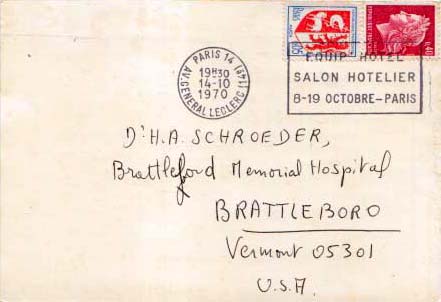 PARIS 14
19H30
14-10
1970
AV. GENERAL LECLERC (14E)
0,40
EQUIP' HOTEL
SALON HOTELIER
8-19 OCTOBRE-PARIS
Dr H.A. SCHROEDER,
Brattleford Memorial Hospital
BRATTLEBORO
Vermont 05301
U.S.A.